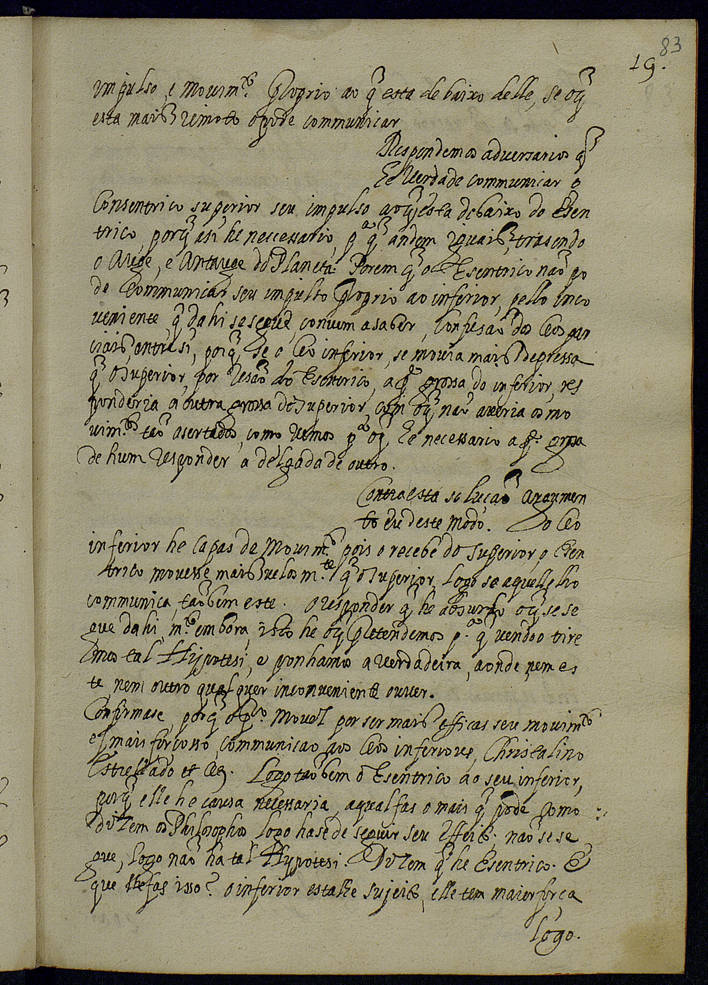 83
19.
impulso, e movim.to proprio ao q̃ esta debaixo delle, se o q̃
esta mais remoto o pode communicar
Respondem os adversarios q̃
He verdade communicar o
Consentrico superior seu impulso ao q̃ esta debaixo do Esen
trico, porq̃ asi he neccessario, p.a q̃ andem iguais, trasendo
o Auge, e Antauge do Planeta. Porem q̃ o Esentrico naõ po
de Communicar seu impulso proprio ao inferior, pello inco
veniente q̃ dahi se segue, convem a saber, Confusaõ dos Ceos par
ciais, antre si, porq̃ se o Ceo inferior, se movia mais depressa
q̃ o superior, por resaõ do Esentrico, a p.te grossa do inferior, res
ponderia a outra grossa do superior, com o q̃ naõ averia os mo
vim.tos taõ asertados, como vemos p.a o q̃ he necessario a p.te grosa
de hum responder a delgada de outro.
Contra esta soluçaõ argumen
to eu deste modo. O Ceo
inferior he capas de movim.to pois o recebe do superior, o Esen
trico movesse mais velosm.te q̃ o superior, logo se aquelle lho
communica, taõbem este. O responder q̃ he absurdo o q̃ se se
gue dahi, m.to embora, isto he o q̃ pretendemos p.a q̃ vendo o tire
mos tal Hypotesi, e ponhamos a verdadeira, aonde nem es
te, nem outro qualquer inconveniente ouver.
Confirmase, porq̃ o p.ro Movel por ser mais efficas seu movim.to
e mais forçosso, communica o aos Ceos inferiores, Christalino
Estrellado et Cet. Logo taõbem o Esentrico ao seu inferior,
porq̃ elle he causa necessaria, a qual fas o mais q̃ pode, como
dizem os Philosophos logo hase de seguir seu Effeito. naõ se se
gue, logo naõ ha tal Hypotesi. Dizem q̃ he Esentrico. E
que lhe fas isso? o inferior estalhe sujeito, elle tem maior força
logo.